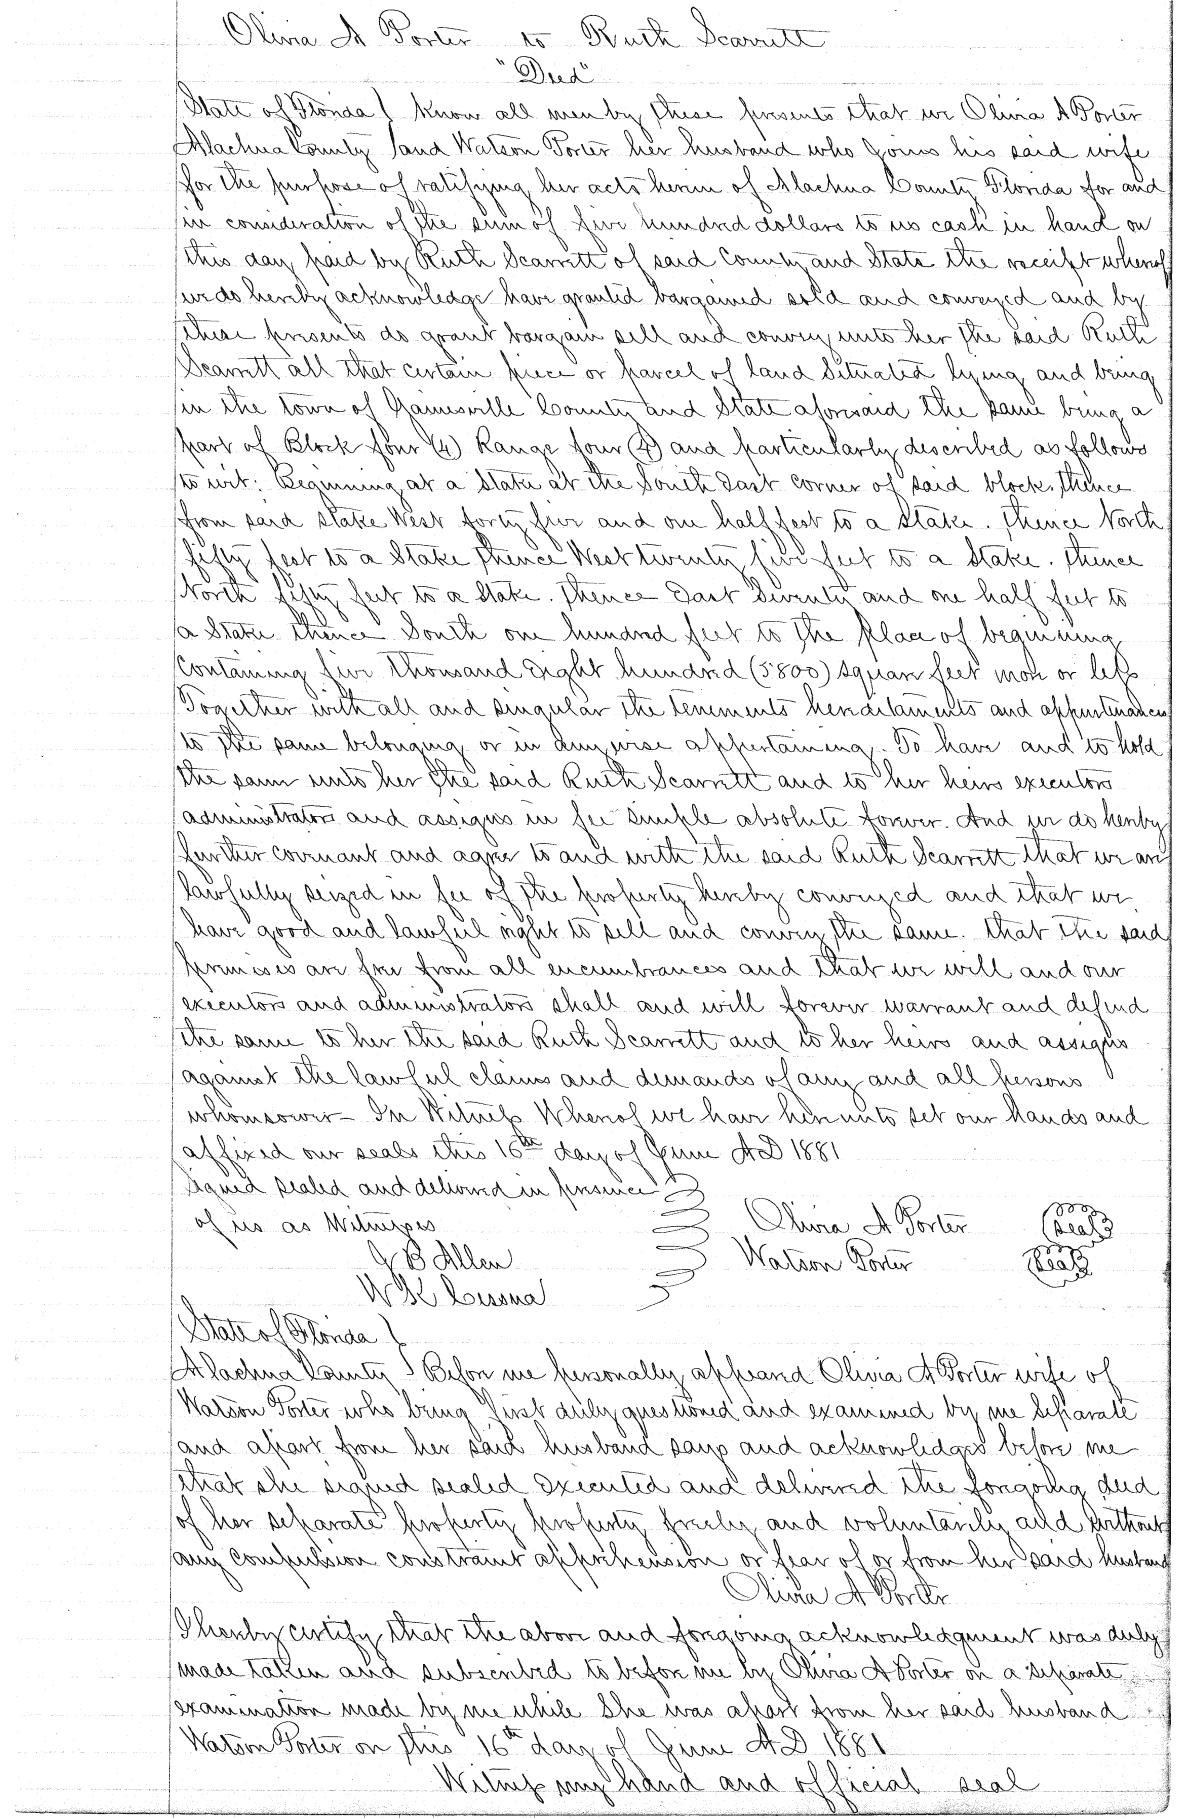 Olivia A Porter to Ruth Scarrett
"Deed"
State of Florida } Know all men by these presents that we Olivia A Porter
Alachua County } and Watson Porter her husband who joins his said wife
for the purpose of ratifying her acts herein of Alachua County Florida for and
in consideration of the sum of five hundred dollars to us cash in hand on
this day paid by Ruth Scarrett of said County and State the receipt whereof
we do hereby acknowledge have granted bargained sold and conveyed and by
these presents do grant bargain sell and convey unto her the said Ruth
Scarrett all that certain piece or parcel of land Situated lying and being
in the town of Gainesville County and State aforesaid the same being a
part of Block four (4) Range four (4) and particularly described as follows
to wit: Beginning at a Stake at the South East corner of said block. thence
from said stake West forty five and one half feet to a Stake. thence North
fifty feet to a Stake thence West twenty five feet to a Stake. thence
North fifty feet to a Stake. thence East Seventy and one half feet to
a Stake thence South one hundred feet to the place of beginning
Containing five thousand Eight hundred (5800) square feet more or less
Together with all and singular the tenements hereditaments and appurtenances
to the same belonging or in anywise appertaining. To have and to hold
the same unto her the said Ruth Scarrett and to her heirs executors
administrators and assigns in fee simple absolute forever. And we do hereby
further covenant and agree to and with the said Ruth Scarrett that we are
lawfully seized in fee of the property hereby conveyed and that we
have good and lawful right to sell and convey the same. that the said
premises are free from all encumbrances and that we will and our
executors and administrators shall and will forever warrant and defend
the same to her the said Ruth Scarrett and to her heirs and assigns
against the lawful claims and demands of any and all persons
whomsoever – In Witness Whereof we have hereunto set our hands and
affixed our seals this 16th day of June AD 1881
Signed sealed and delivered in presence
of us as Witnesses Olivia A Porter (Seal)
J B Allen Watson Porter (Seal)
W K Cessna
State of Florida }
Alachua County } Before me personally appeared Olivia A Porter wife of
Watson Porter who being first duly questioned and examined by me Separate
and apart from her said husband says and acknowledges before me
that she signed sealed executed and delivered the foregoing deed
of her separate property property freely and voluntarily and without
any compulsion constraint apprehension or fear of or from her said husband
Olivia A Porter
I hereby certify that the above and foregoing acknowledgment was duly
made taken and subscribed to before me by Olivia A Porter on a separate
examination made by me while She was apart from her said husband
Watson Porter on this 16th day of June AD 1881
Witness my hand and official seal